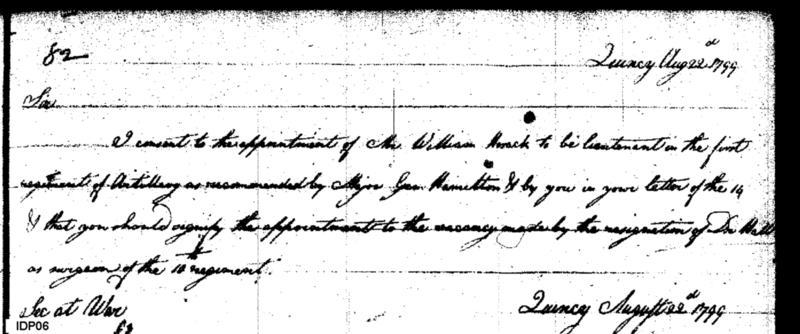 82
Quincy Aug 22d 1799
Sir
I consent to the appointment of Mr. William to be lieutenant in the first
regiment of Artillery as recommended by Major Gen Hamilton & by you in your letter of the 14
& that you should signify the appointment to the vacancy made by the resignation of Dr Hall
as surgeon of the 10th regiment.
Sec at War
Quincy August 22d 1799
IDP06